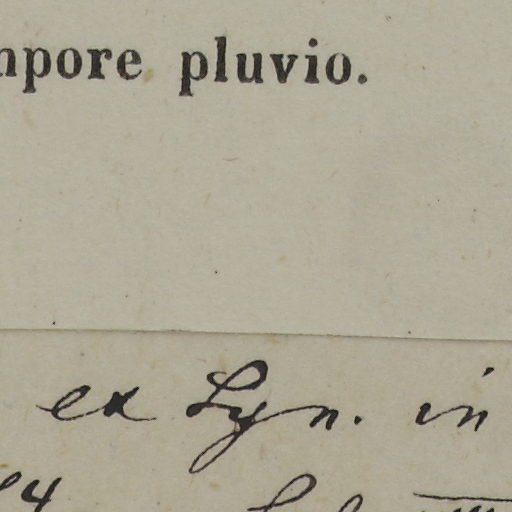 mpore pluvio.
ex Lyn. in